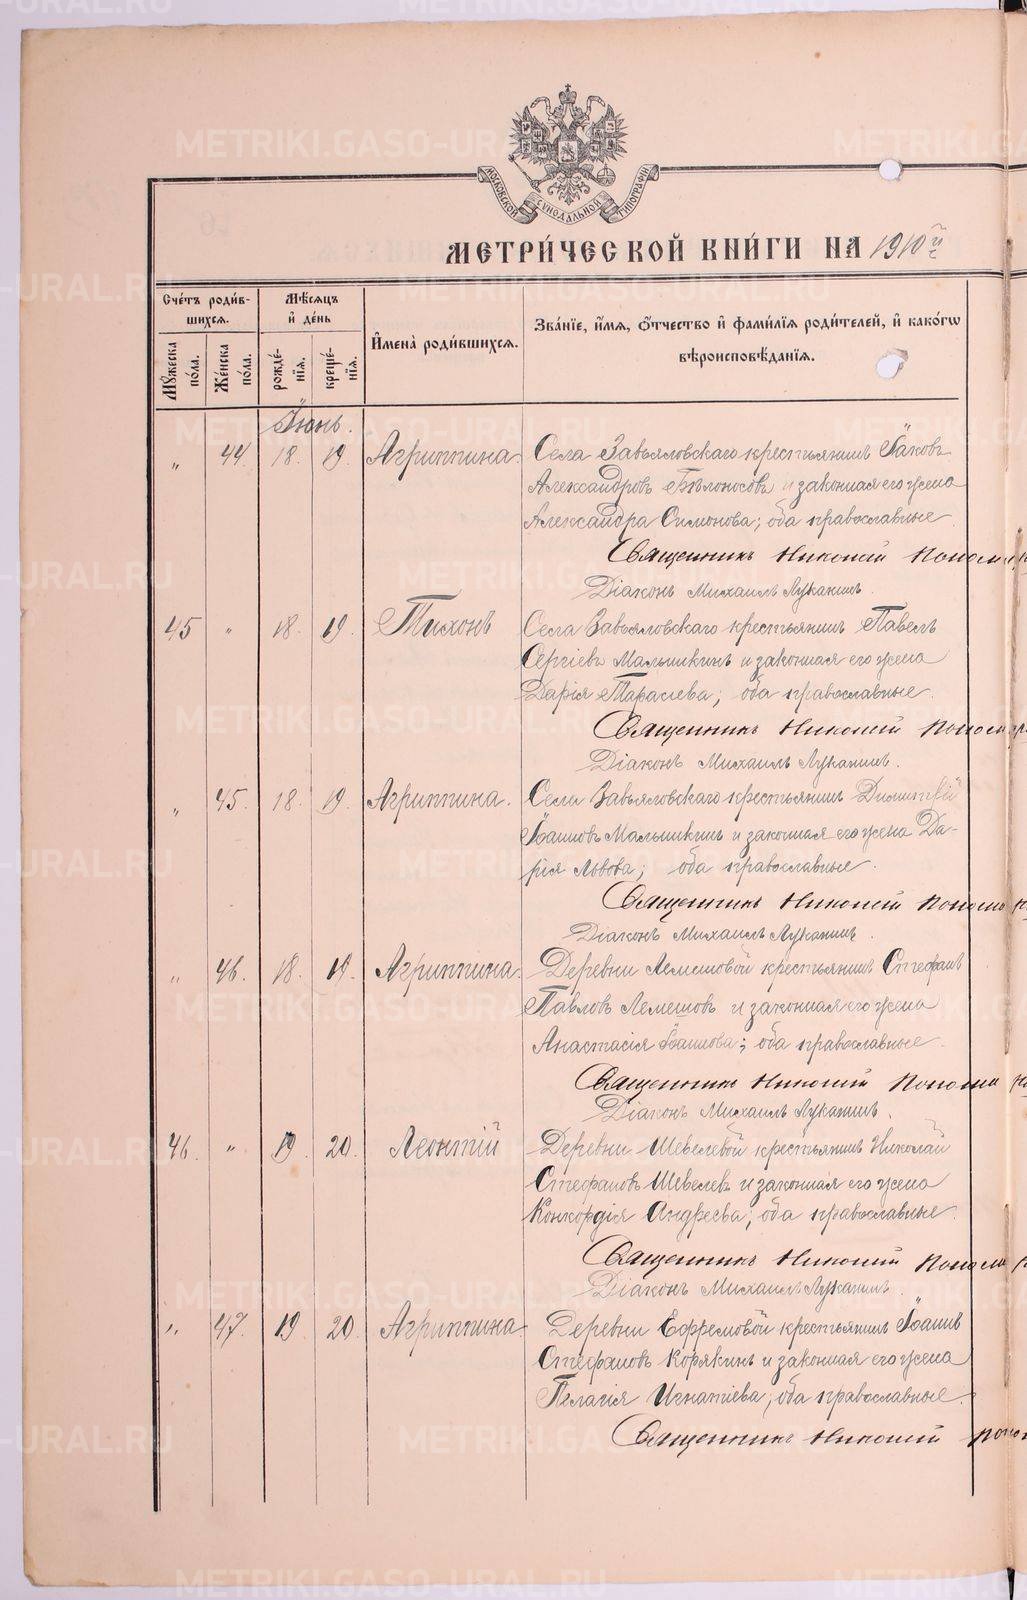 МОСКОВСКОЙ СѴНОДАЛЬНОЙ ТИПОГРАФІИ
МЕТРИ́ЧЕСКОЙ КНИ́ГИ НА 1910 й
Сче́тъ роди́в-
шихся.
Мѣсяцъ
и де́нь
Имена̀ роди́вшихся.
Зва́нїе, и́мя, ѻ́тчество и фами́лїя роди́телей, и како́гѡ
вѣроисповѣ́данїя.
Мꙋжеска
по́ла.
Же́нска
по́ла.
рожде́-
нїя.
креще́-
нїя.
Іюнь.
„ 44. 18. 19. Агриппина. Села Завьяловскаго крестьянинъ Іаковъ
Александровъ Бѣлоносовъ и законная его жена
Александра Симонова; оба православные
Священникъ Николай Пономар
Діаконъ Михаилъ Луканинъ.
45 „ 18. 19. Тихонъ Села Завьяловскаго крестьянинъ Павелъ
Сергіевъ Малышкинъ и законная его жена
Дарія Тарасіева; оба православные.
Священникъ Николай Пономар
Діаконъ Михаилъ Луканинъ.
„ 45. 18. 19. Агриппина. Села Завьяловскаго крестьянинъ Димитрій
Іоанновъ Малышкинъ и законная его жена Да-
рія Львова; оба православные.
Священникъ Николай Пономар
Діаконъ Михаилъ Луканинъ.
„ 46. 18. 19. Агриппина. Деревни Лемешовой крестьянинъ Стефанъ
Павловъ Лемешовъ и законная его жена
Анастасія Іоаннова; оба православные.
Священникъ Николай Пономар
Діаконъ Михаилъ Луканинъ.
46. „ 19 20. Леонтій Деревни Шевелевой крестьянинъ Николай
Стефановъ Шевелевъ и законная его жена
Конкордія Андреева; оба православные.
Священникъ Николай Пономар
Діаконъ Михаилъ Луканинъ.
„ 47. 19 20. Агриппина. Деревни Ефремовой крестьянинъ Іоаннъ
Стефановъ Корякинъ и законная его жена
Пелагія Игнатіева; оба православные.
Священникъ Николай Поно
METRIKI.GASO-URAL.RU